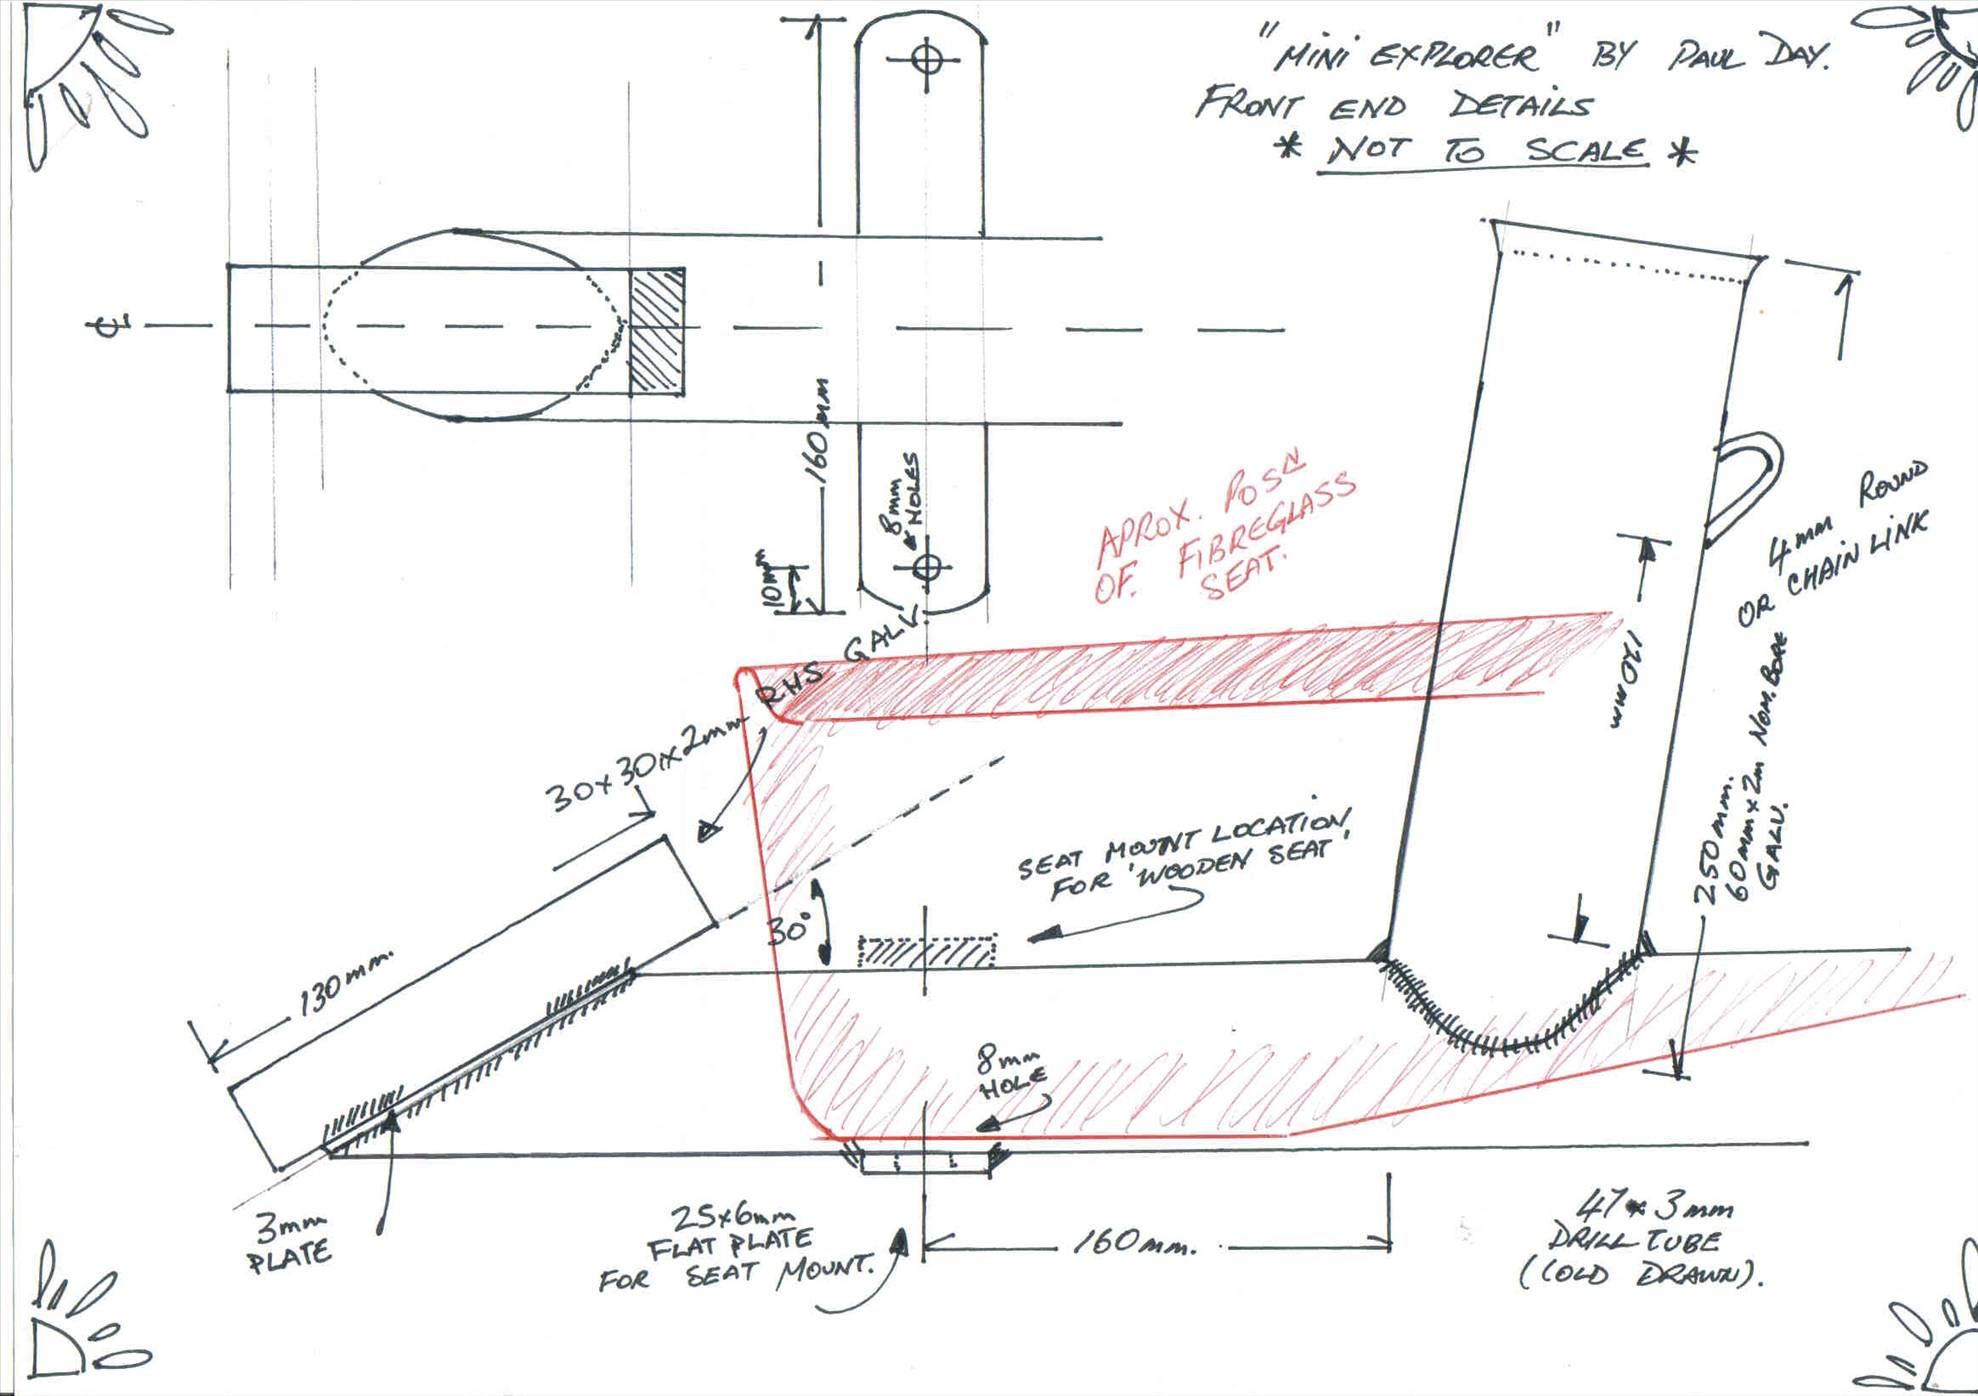 "MINI EXPLORER" BY PAUL DAY.
FRONT END DETAILS
* NOT TO SCALE *
℄
160mm
8mm
HOLES
10mm
APROX. POSN
OF. FIBREGLASS
SEAT.
4mm ROUND
OR CHAIN LINK
170mm
250mm.
60mm x 2m NOM. BORE
GALV.
30x30x2mm RHS GALV.
SEAT MOUNT LOCATION,
FOR 'WOODEN SEAT'
30°
130mm.
8mm
HOLE
3mm
PLATE
25x6mm
FLAT PLATE
FOR SEAT MOUNT.
160mm.
47x3mm
DRILL TUBE
(COLD DRAWN).